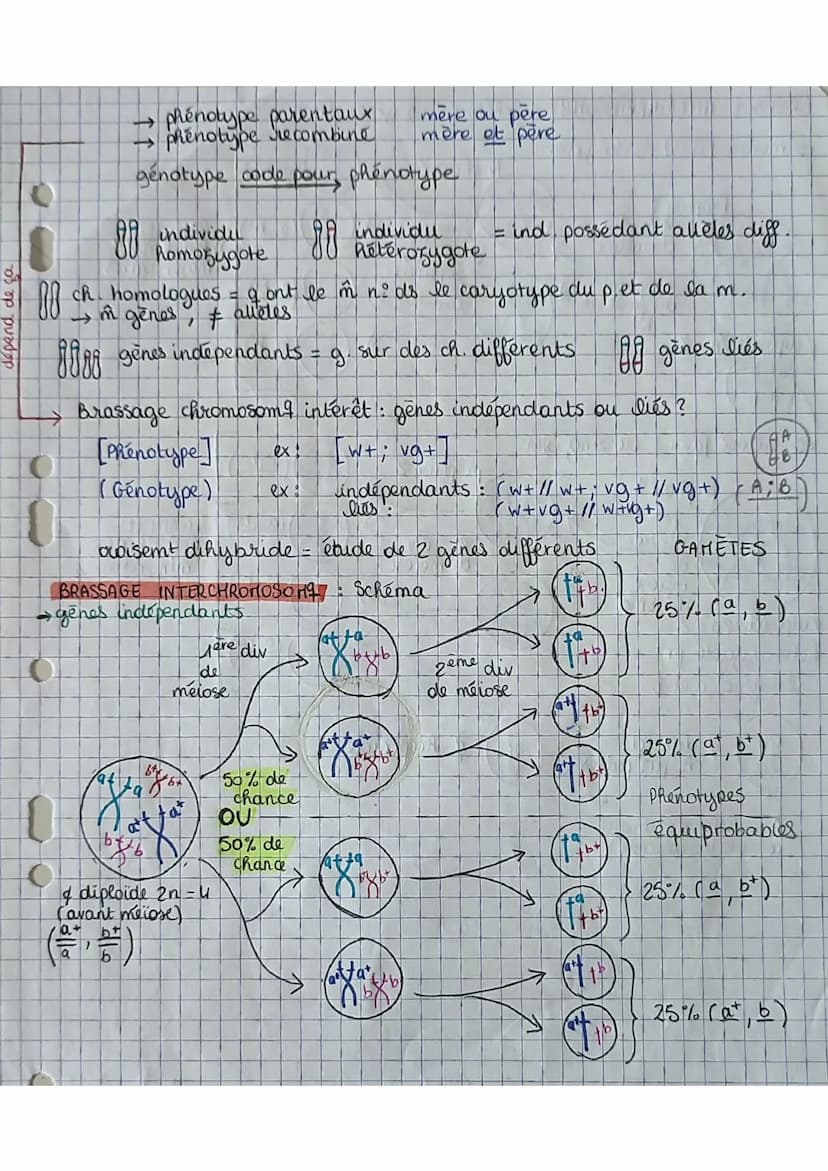 → phénotype parentaux mère ou père
→ phénotype recombiné mère et père
génotype code pour phénotype
individu homozygote
individu hétérozygote = ind. possédant allèles diff.
ch. homologues = q ont le m̂ n° ds le caryotype du p. et de la m.
→ m̂ gènes, ≠ allèles
gènes indépendants = g. sur des ch. différents gènes liés
dépend de ça
→ Brassage chromosomq intérêt : gènes indépendants ou liés ?
[Phénotype] ex : [w+ ; vg+]
A
B
(Génotype) ex : indépendants : (w+ // w+ ; vg+ // vg+) (A ; B)
liés : (w+vg+ // w+vg+)
croisemt dihybride = étude de 2 gènes différents GAMÈTES
BRASSAGE INTERCHROMOSOMq : Schéma
→ gènes indépendants
1ère div
de
méiose
2ème div
de méiose
a a
b b
a b
a b
25% (a, b)
a+ a+
b+ b+
a+ b+
a+ b+
25% (a+, b+)
50% de
chance
OU
50% de
chance
Phénotypes
équiprobables
a a
b+ b+
a+ a+
b b
¢ diploïde 2n = 4
(avant méiose)
(a+/a , b+/b)
a a
b+ b+
a b+
a b+
25% (a, b+)
a+ a+
b b
a+ b
a+ b
25% (a+, b)